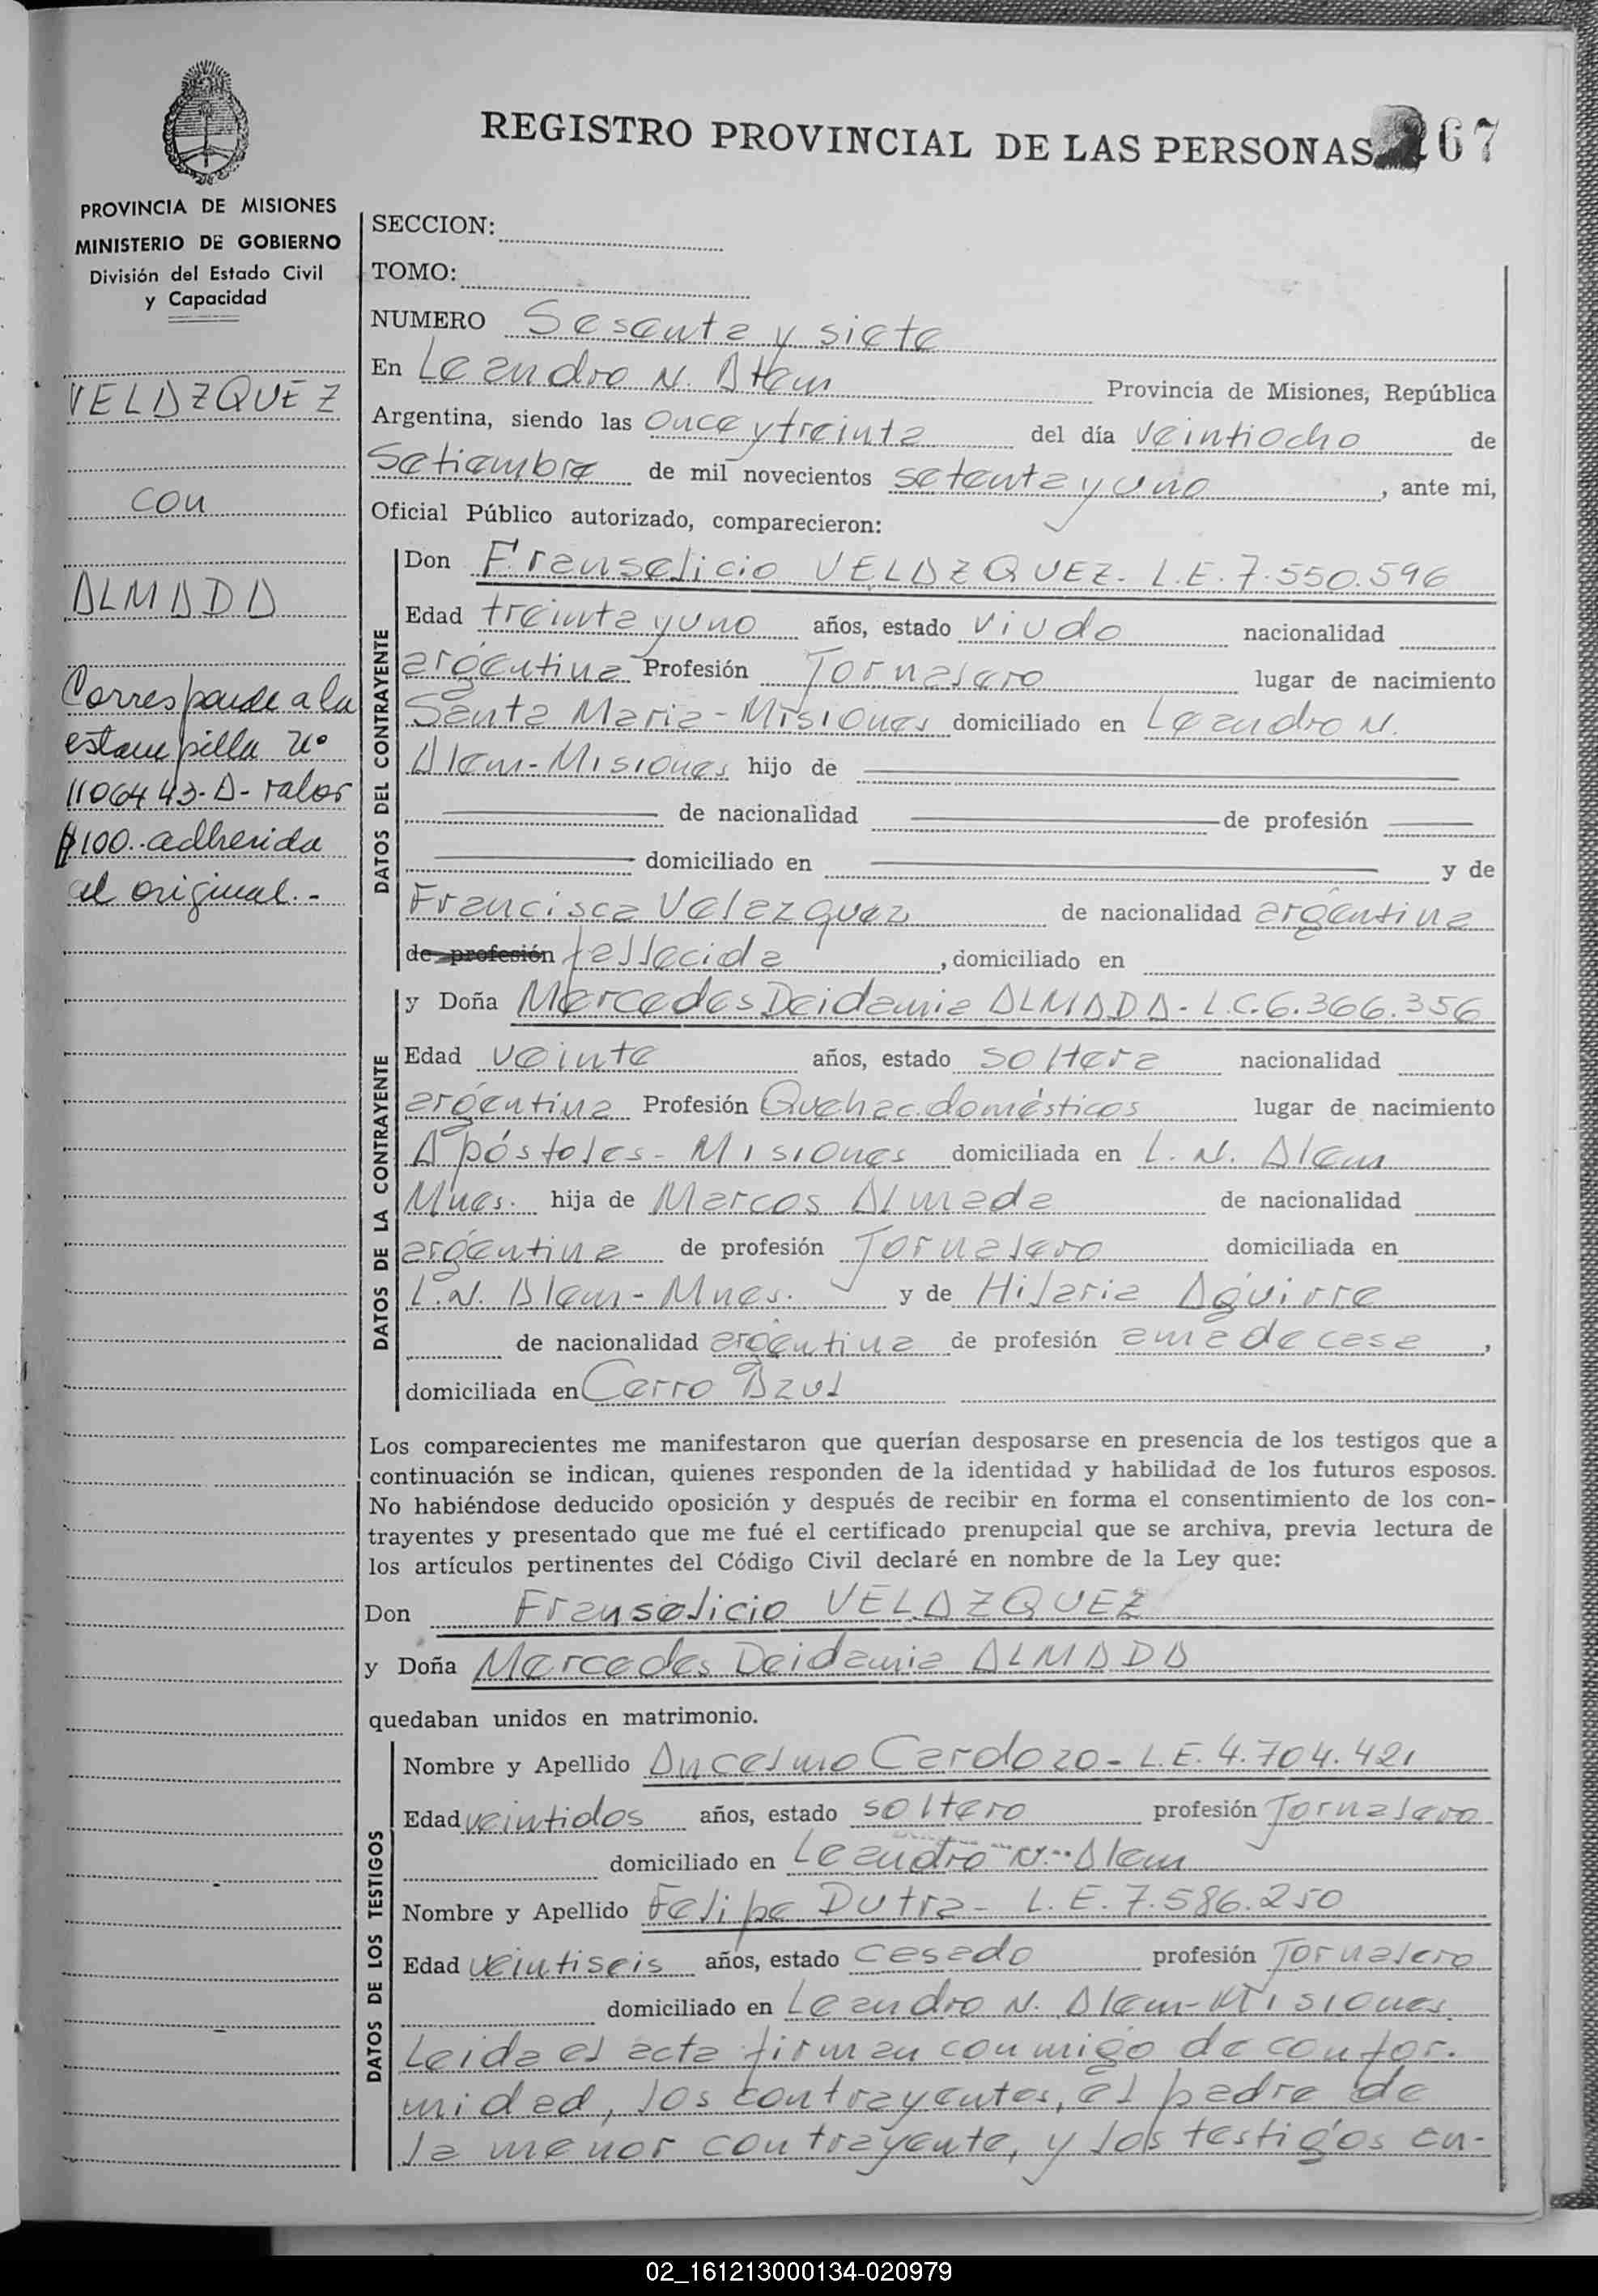 REGISTRO PROVINCIAL DE LAS PERSONAS 67
PROVINCIA DE MISIONES
MINISTERIO DE GOBIERNO
División del Estado Civil
y Capacidad
VELAZQUEZ
con
ALMADA
Corresponde a la
estampilla No
1106443-A- valor
$100.- adherida
al original.-
SECCION:
TOMO:
NUMERO Sesenta y siete
En Leandro N. Alem Provincia de Misiones, República
Argentina, siendo las once y treinta del día veintiocho de
Setiembre de mil novecientos setenta y uno, ante mi,
Oficial Público autorizado, comparecieron:
DATOS DEL CONTRAYENTE
Don Franselicio VELAZQUEZ- L.E. 7.550.596
Edad treinta y uno años, estado viudo nacionalidad
argentina Profesión Jornalero lugar de nacimiento
Santa Maria-Misiones domiciliado en Leandro N.
Alem-Misiones hijo de
de nacionalidad de profesión
domiciliado en y de
Francisca Velazquez de nacionalidad argentina
de profesión fallecida, domiciliado en
DATOS DE LA CONTRAYENTE
y Doña Mercedes Deidamia ALMADA- L.C. 6.366.356
Edad veinte años, estado soltera nacionalidad
argentina Profesión Quehac. domésticos lugar de nacimiento
Apóstoles- Misiones domiciliada en L. N. Alem
Mnes. hija de Marcos Almada de nacionalidad
argentina de profesión Jornalero domiciliada en
L.N. Alem- Mnes. y de Hilaria Aguirre
de nacionalidad argentina de profesión ama de casa,
domiciliada en Cerro Azul
Los comparecientes me manifestaron que querían desposarse en presencia de los testigos que a
continuación se indican, quienes responden de la identidad y habilidad de los futuros esposos.
No habiéndose deducido oposición y después de recibir en forma el consentimiento de los con-
trayentes y presentado que me fué el certificado prenupcial que se archiva, previa lectura de
los artículos pertinentes del Código Civil declaré en nombre de la Ley que:
Don Franselicio VELAZQUEZ
y Doña Mercedes Deidamia ALMADA
quedaban unidos en matrimonio.
DATOS DE LOS TESTIGOS
Nombre y Apellido Ancelmo Cardozo- L.E. 4.704.421
Edad veintidos años, estado soltero profesión Jornalero
domiciliado en Leandro N. Alem
Nombre y Apellido Felipe Dutra- L.E. 7.586.250
Edad veintiseis años, estado casado profesión Jornalero
domiciliado en Leandro N. Alem-Misiones
Leida el acta firman conmigo de confor-
midad, los contrayentes, el padre de
la menor contrayente, y los testigos en-
02_161213000134-020979